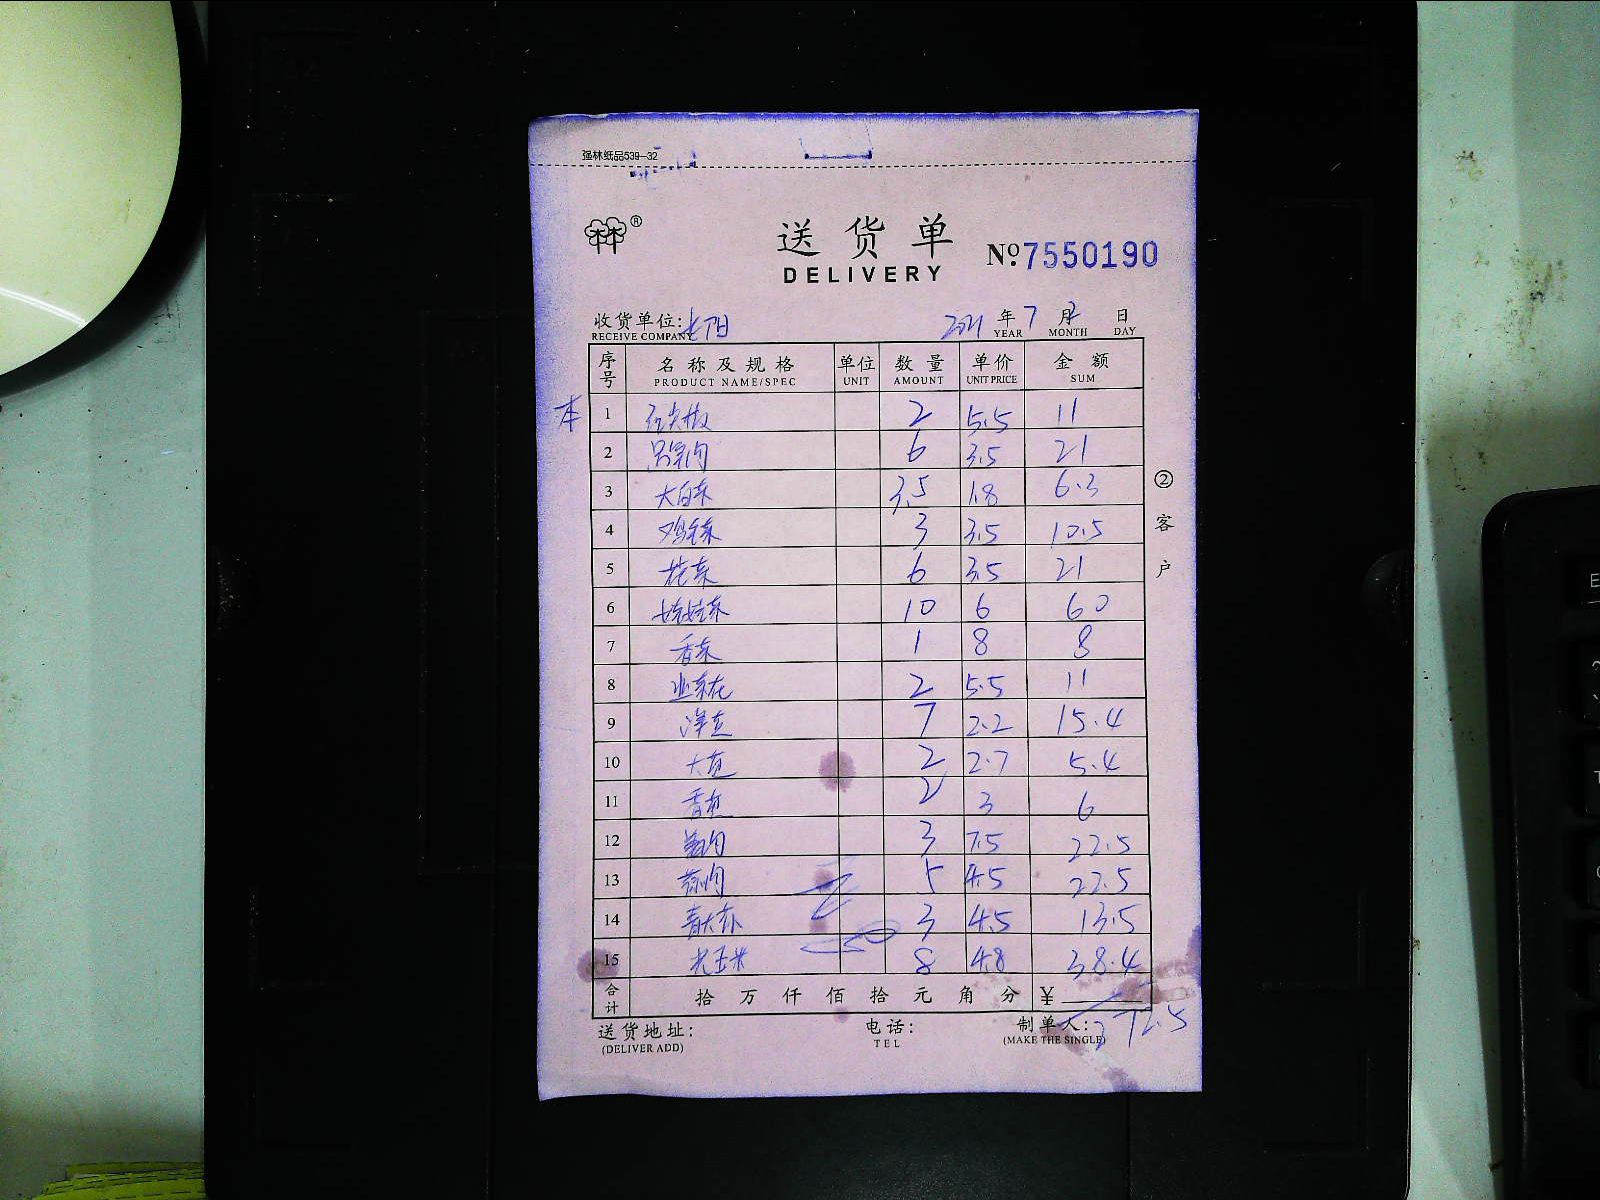 强林纸品539-32
送货单
DELIVERY
№ 7550190
收货单位: 2021年7月2日
RECEIVE COMPANY YEAR MONTH DAY
序号 名称及规格 单位 数量 单价 金额
PRODUCT NAME/SPEC UNIT AMOUNT UNIT PRICE SUM
本 1 2 5.5 11
2 6 3.5 21
3 大白菜 3.5 1.8 6.3
4 3 3.5 10.5
5 花菜 6 3.5 21
6 娃娃菜 10 6 60
7 香菜 1 8 8
8 2 5.5 11
9 7 2.2 15.4
10 2 2.7 5.4
11 2 3 6
12 3 7.5 22.5
13 5 4.5 22.5
14 3 4.5 13.5
15 8 4.8 38.4
合计 拾万仟佰拾元角分 ¥ 272.5
送货地址: 电话: 制单人:
(DELIVER ADD) TEL (MAKE THE SINGLE)
②客户